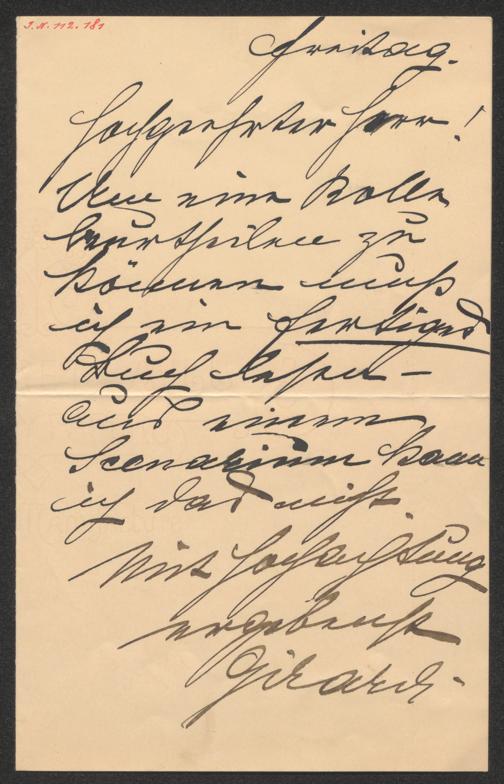 I.N. 112.181
Freitag.
Hochgeehrter Herr!
Um eine Rolle
beurtheilen zu
können muß
ich ein fertiges
Buch lesen –
aus einem
Scenarium kann
ich das nicht.
Mit Hochachtung
ergebenst
Girardi